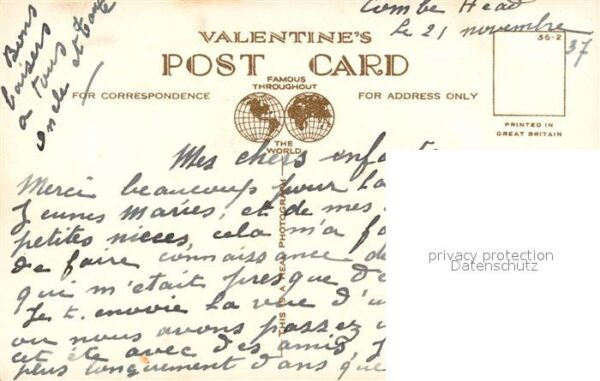 Combe Head
Le 21 novembre
37
Bons
baisers
a tous
Oncle et Tante
VALENTINE'S
POST CARD
FAMOUS
THROUGHOUT
THE
WORLD
FOR CORRESPONDENCE
FOR ADDRESS ONLY
36-2
PRINTED IN
GREAT BRITAIN
THIS IS A REAL PHOTOGRAPH
Mes chers enfants
Merci beaucoup pour
Jeunes Maries, et de mes
petites nieces, cela m'a
de faire connaissance
qui m'etait presque
Je t. envoie la vue d'u
ou nous avons passez
cet été avec des amis,
plus longuement dans que
privacy protection
Datenschutz